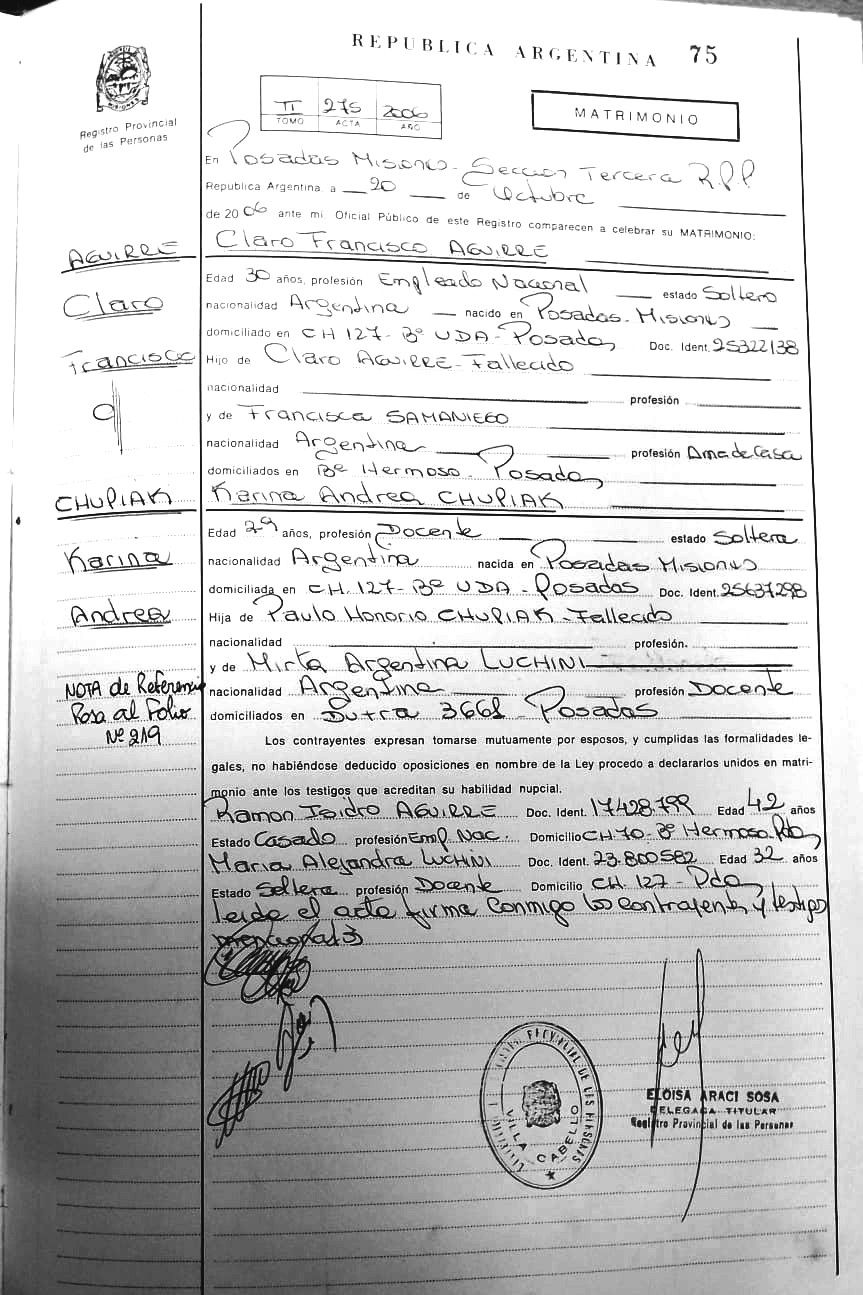 REPUBLICA ARGENTINA 75
II 275 2006
TOMO ACTA AÑO
MATRIMONIO
Registro Provincial
de las Personas
En Posadas Misiones - Sección Tercera R.P.P
Republica Argentina, a 20 de Octubre
de 2006 ante mi, Oficial Público de este Registro comparecen a celebrar su MATRIMONIO:
Claro Francisco AGUIRRE
Edad 30 años, profesión Empleado Nacional estado Soltero
nacionalidad Argentina nacido en Posadas - Misiones
domiciliado en CH 127 - Bº UDA - Posadas Doc. Ident. 25322138
Hijo de Claro AGUIRRE - Fallecido
nacionalidad profesión
y de Francisca SAMANIEGO
nacionalidad Argentina profesión Ama de Casa
domiciliados en Bº Hermoso - Posadas
Karina Andrea CHUPIAK
Edad 29 años, profesión Docente estado Soltera
nacionalidad Argentina nacida en Posadas Misiones
domiciliada en CH. 127 - Bº UDA - Posadas Doc. Ident. 25637298
Hija de Paulo Honorio CHUPIAK - Fallecido
nacionalidad profesión.
y de Mirta Argentina LUCHINI
nacionalidad Argentina profesión Docente
domiciliados en Dutra 3661 - Posadas
Los contrayentes expresan tomarse mutuamente por esposos, y cumplidas las formalidades le-
gales, no habiéndose deducido oposiciones en nombre de la Ley procedo a declararlos unidos en matri-
monio ante los testigos que acreditan su habilidad nupcial.
Ramon Isidro AGUIRRE Doc. Ident. 17.428.799 Edad 42 años
Estado Casado profesión Emp. Nac. Domicilio CH 70 - Bº Hermoso - Pdas
Maria Alejandra LUCHINI Doc. Ident. 23.800.582 Edad 32 años
Estado Soltera profesión Docente Domicilio CH. 127 - Pdas
leida el acta firma conmigo los contrayentes y testigos
AGUIRRE
Claro
Francisco
CHUPIAK
Karina
Andrea
NOTA de Referencia
Pasa al Folio
Nº 219
VILLA CABELLO
ELOISA ARACI SOSA
DELEGADA TITULAR
Registro Provincial de las Personas